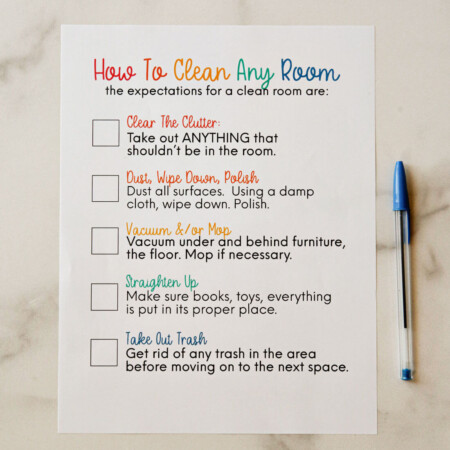 How To Clean Any Room
the expectations for a clean room are:
Clear The Clutter:
Take out ANYTHING that
shouldn't be in the room.
Dust, Wipe Down, Polish
Dust all surfaces. Using a damp
cloth, wipe down. Polish.
Vacuum &/or Mop
Vacuum under and behind furniture,
the floor. Mop if necessary.
Straighten Up
Make sure books, toys, everything
is put in its proper place.
Take Out Trash
Get rid of any trash in the area
before moving on to the next space.